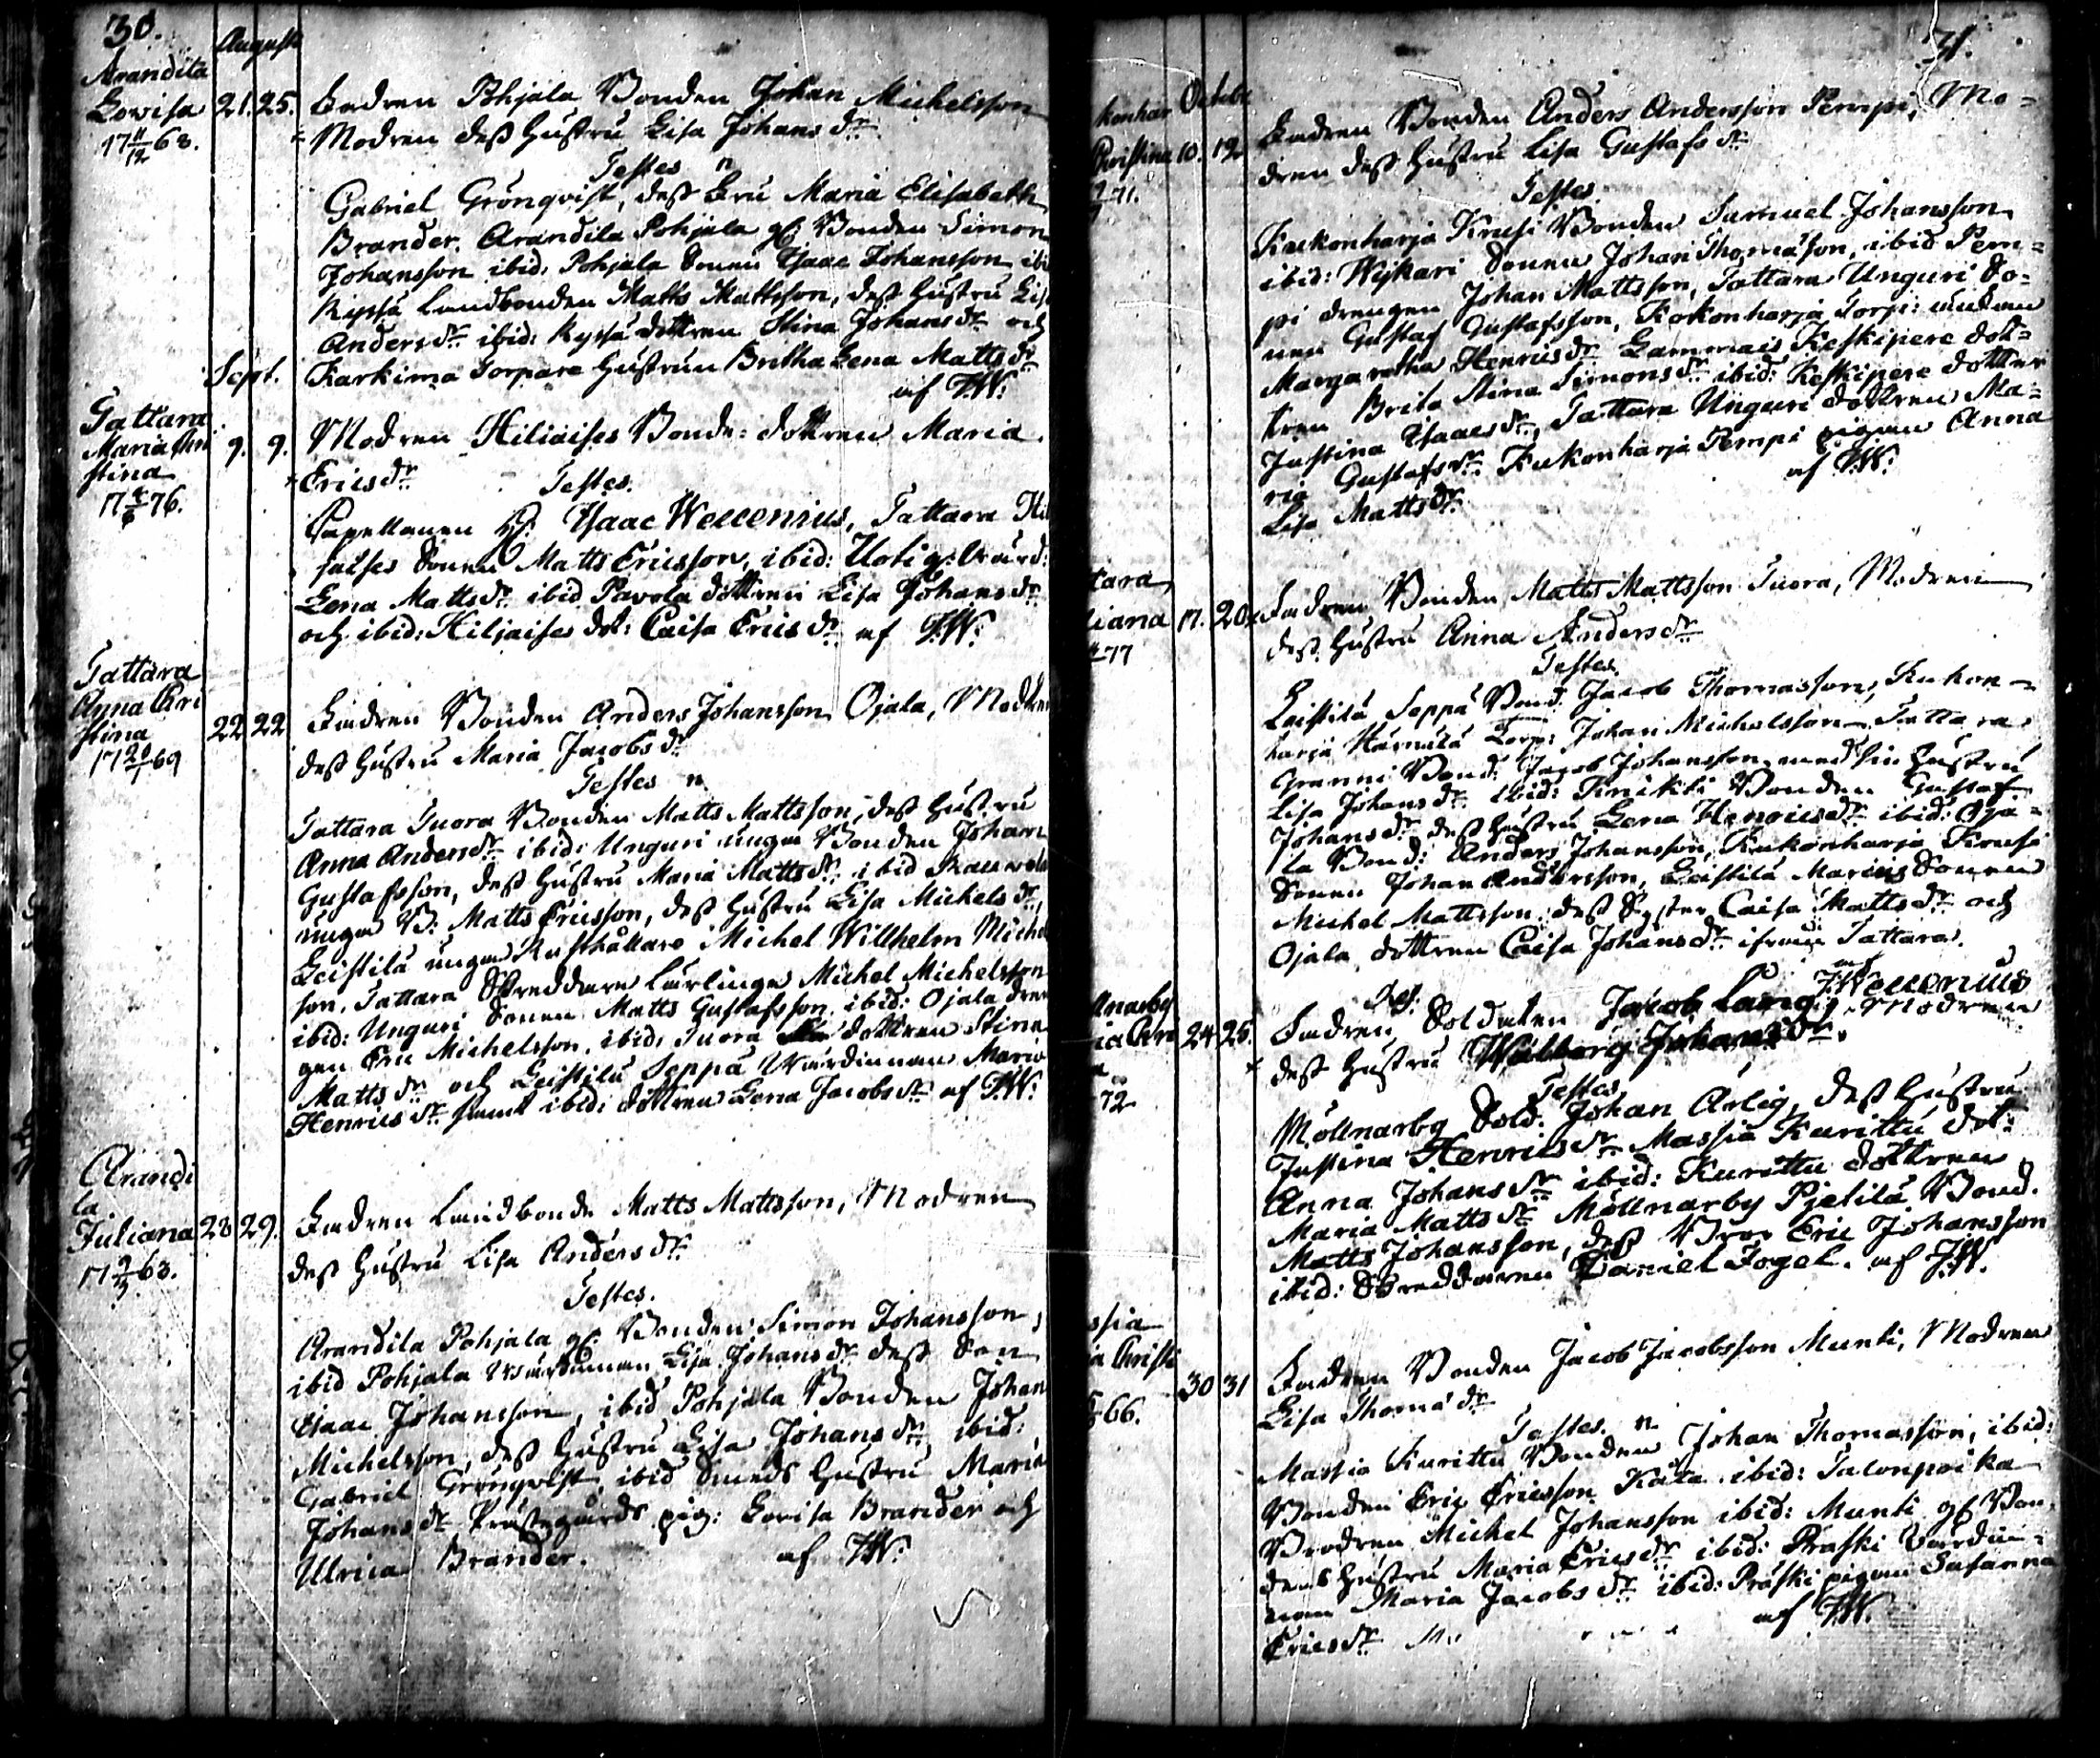 30.
Augusti
Arandila
Lovisa 21. 25. Fadren Pohjala Bonden Johan Michelsson
17 11/12 63. Modren dess Hustru Lisa Johans dr
Testes
Gabriel Grönqvist, dess Fru Maria Elisabeth
Brander, Arandila Pohjala gl. Bonden Simon
Johansson ibid: Pohjala Sonen Isaac Johansson ibi
Kyssä Landbonden Matts Mattsson, dess Hustru Lis
Anders dr ibid: Kyssä dottren Stina Johans dr och
Karkima Torpare Hustrun Britha Lena Matts dr
af JW:
Sept.
Tattara
Maria Chri 9. 9. Modren Hiliaises Bonde-dottren Maria
stina Erics dr
Testes.
17 4/6 76.
Capellanen H: Isaac Wellenius, Tattara Hi
saises Sonen Matts Ericsson, ibid: Uoti
Lena Matts dr ibid Pavola dottren Lisa Johans dr
och ibid: Hiljaises dot: Caisa Erics dr af JW:
Tattara
Anna Chri
stina 22 22 Fadren Bonden Anders Johansson Ojala, Modren
17 20/1 69 dess Hustru Maria Jacobs dr
Testes
Tattara Tuora Bonden Matts Mattsson, dess Hustru
Anna Anders dr ibid: Unguri unga Bonden Johan
Gustafsson, dess Hustru Maria Matts dr, ibid
unga B: Matts Ericsson, dess Hustru Lisa Michels dr,
Leistilä unga Rusthållare Michel Willhelm Michel
son, Tattara Skreddare Lärlinge Michel Michelsson
ibid: Unguri Sonen Matts Gustafsson, ibid: Ojala dren
gen Eric Michelsson, ibid: Tuora dottren Stina
Matts dr och Leistilä Seppä Wärdinnan Maria
Henrics dr samt ibid: dottren Lena Jacobs dr af JW:
Arandi
la
Juliana 28 29. Fadren Landbonde Matts Mattsson, Modren
17 9/3 63. dess Hustru Lisa Anders dr
Testes.
Arandila Pohjala gl. Bonden Simon Johansson,
ibid Pohjala Wärdinnan Lisa Johans dr dess Son
Isaac Johansson, ibid Pohjala Bonden Johan
Michelsson, dess Hustru Lisa Johans dr, ibid:
Gabriel Grönqvist, ibid Smeds Hustru Maria
Johans dr Prästegårds pig: Lovisa Brander och
Ulrica Brander. af JW:
31.
Octobr
konhar
Christina 10. 12. Fadren Bonden Anders Andersson Pempi, Mo-
71. dren dess Hustru Lisa Gustafs dr
Testes
Kukonharja Krusi Bonden Samuel Johansson
ibid: Wijkari Sonen Johan Thomasson, ibid Pem-
pi drengen Johan Mattsson, Tattara Unguri So-
nen Gustaf Gustafsson, Kokonharja Torp:
Margaretha Henrics dr Lammais Keskipere dot-
tren Brita Stina Simons dr ibid: Keskipere dotter
Justina Isaacs dr, Tattara Unguri dottren Ma-
ria Gustafs dr Kukonharja Pempi pigan Anna
Lisa Matts dr af JW:
tara
liana 17. 20. Fadren Bonden Matts Mattsson Tuora, Modren
77 dess Hustru Anna Anders dr
Testes
Laistilä Seppä Bond: Jacob Thomasson, Kukon-
harja Torp: Johan Michelsson Tattara
Granni Bond: Jacob Johansson med sin Hustru
Lisa Johans dr ibid: Bonden Gustaf
Johans dr, dess Hustru Lena Henrics dr ibid: Oja-
la Bond: Anders Johansson, Kukonharja Krusi
Sonen Johan Andersson, Leistilä Sonen
Michel Mattsson dess Syster Caisa Matts dr och
Ojala dottren Caisa Johans dr ifrån Tattara.
af
J:Wellenius
llnarby
ia Chri 24 25. Fadren Soldaten Jacob Lång, Modren
72 dess Hustru Walborg Johans dr.
Testes
Möllnarby Sold: Johan Arlig, dess Hustru
Justina Henrics dr Massia Kurittu dot:
Anna Johans dr ibid: Kurittu dottren
Maria Matts dr Möllnarby Pjelilä Bond.
Matts Johansson, dess Bror Eric Johansson
ibid: Skreddaren Daniel Fogel. af JW.
ssia
ia Christi
30 31 Fadren Bonden Jacob Jacobsson Munti, Modren
66. Lisa Thoma dr
Testes.
Massia Kurittu Bonden Johan Thomasson, ibid:
Bonden Eric Ericsson Kåla ibid: Talonpoika
Brodren Michel Johansson ibid: Munti gl Bon-
dens Hustru Maria Erics dr ibid: Präski Värdin-
nan Maria Jacobs dr ibid: Präski pigan Susanna
Erics dr af JW.